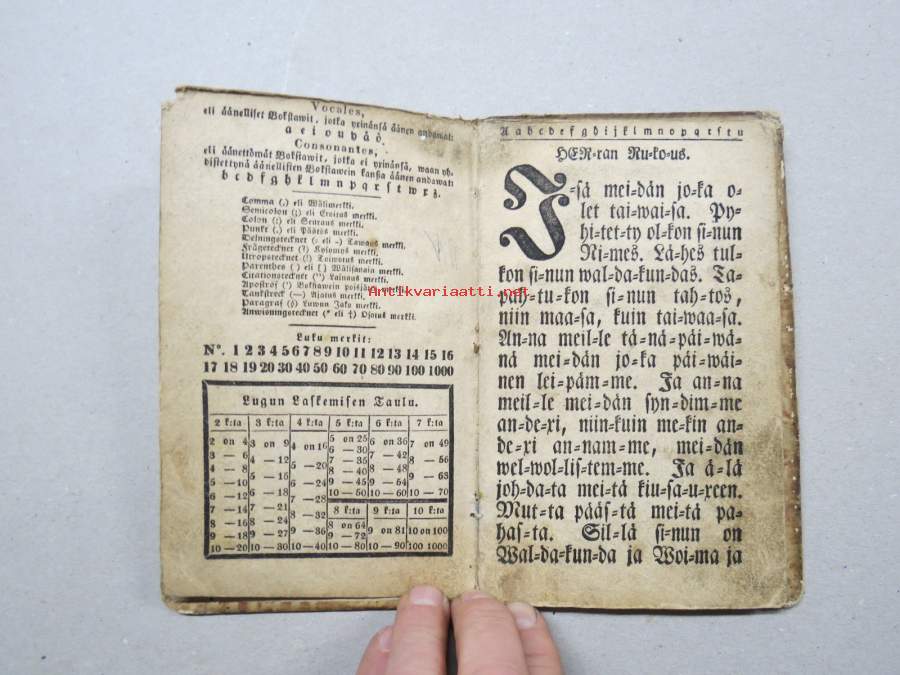 Vocales,
eli äänelliset Bokstawit, jotka yxinänsä äänen andawat:
a e i o u y å ä ö.
Consonantes,
eli äänettömät Bokstawit, jotka ei yxinänsä, waan yh-
distettynä äänellisten Bokstawein kanssa äänen andawat:
b c d f g h k l m n p q r s t w x z.
Comma (,) eli Wälimerkki.
Semicolon (;) eli Eroitus merkki.
Colon (:) eli Seuraus merkki.
Punkt (.) eli Päätös merkki.
Delningstecknet (: eli -) Tawaus merkki.
Frågetecknet (?) Kysymys merkki.
Utropstecknet (!) Toiwotus merkki.
Parenthes ( ) eli [ ] Wälisanain merkki.
Citationstecknet (") Lainaus merkki.
Apostrof (') Bokstawein poisjätö merkki.
Tankstreck (—) Ajatus merkki.
Paragraf (§) Luwun Jako merkki.
Anwisningstecknet (* eli †) Osotus merkki.
Luku merkit:
N°. 1 2 3 4 5 6 7 8 9 10 11 12 13 14 15 16
17 18 19 20 30 40 50 60 70 80 90 100 1000
Lugun Laskemisen Taulu.
2 k:ta 3 k:ta 4 k:ta 5 k:ta 6 k:ta 7 k:ta
2 on 4
3 — 6
4 — 8
5 — 10
6 — 12
7 — 14
8 — 16
9 — 18
10 — 20
3 on 9
4 — 12
5 — 15
6 — 18
7 — 21
8 — 24
9 — 27
10 — 30
4 on 16
5 — 20
6 — 24
7 — 28
8 — 32
9 — 36
10 — 40
5 on 25
6 — 30
7 — 35
8 — 40
9 — 45
10 — 50
6 on 36
7 — 42
8 — 48
9 — 54
10 — 60
7 on 49
8 — 56
9 — 63
10 — 70
8 k:ta 9 k:ta 10 k:ta
8 on 64
9 — 72
10 — 80
9 on 81
10 — 90
10 on 100
100 1000
A a b c d e f g h i j k l m n o p q r s t u
HER-ran Ru-ko-us.
I-sä mei-dän jo-ka o-
let tai-wai-sa. Py-
hi-tet-ty ol-kon si-nun
Ni-mes. Lä-hes tul-
kon si-nun wal-da-kun-das. Ta-
pah-tu-kon si-nun tah-tos,
niin maa-sa, kuin tai-waa-sa.
An-na meil-le tä-nä-päi-wä-
nä mei-dän jo-ka päi-wäi-
nen lei-päm-me. Ja an-na
meil-le mei-dän syn-dim-me
an-de-xi, niin-kuin me-kin an-
de-xi an-nam-me, mei-dän
wel-wol-lis-tem-me. Ja ä-lä
joh-da-ta mei-tä kiu-sa-u-xeen.
Mut-ta pääs-tä mei-tä pa-
has-ta. Sil-lä si-nun on
Wal-da-kun-da ja Woi-ma ja
Antikvariaatti.net